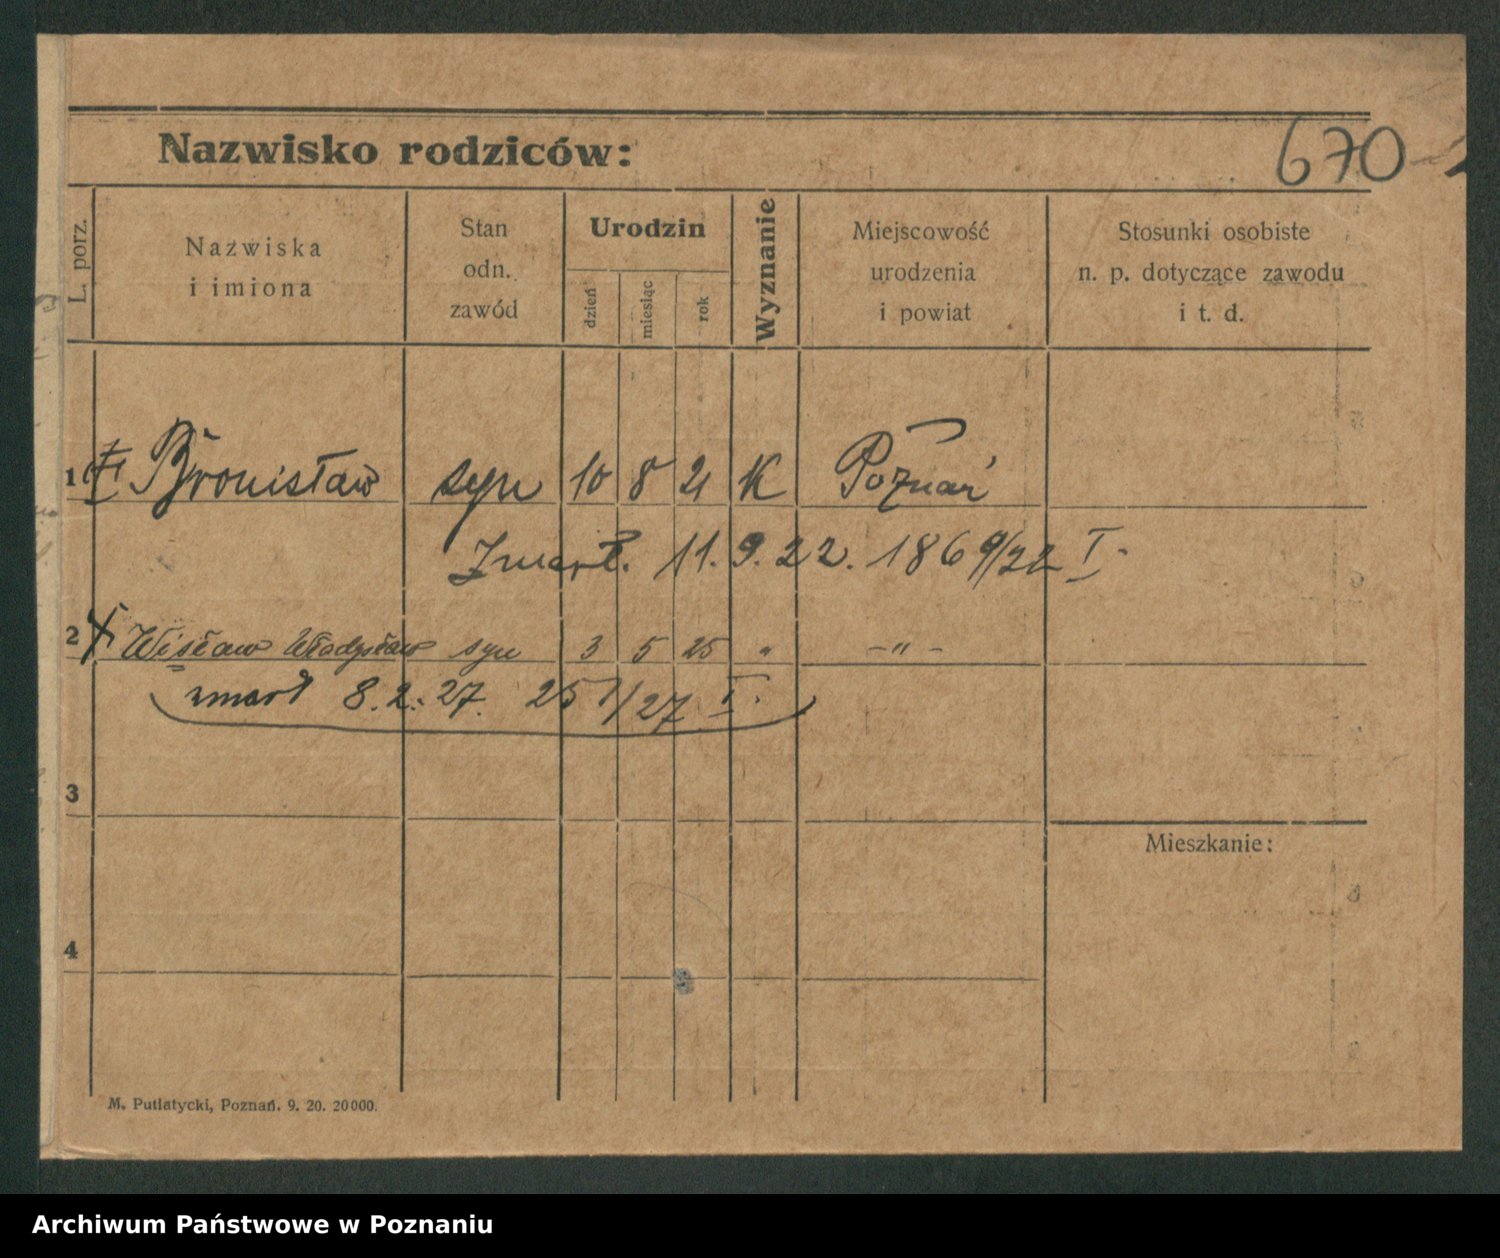 Nazwisko rodziców:
670
L. porz.
Nazwiska
i imiona
Stan
odn.
zawód
Urodzin
dzień
miesiąc
rok
Wyznanie
Miejscowość
urodzenia
i powiat
Stosunki osobiste
n. p. dotyczące zawodu
i t. d.
1 Bronisław syn 10 8 21 K Poznań
Zmarł. 11. 9. 22. 1869/22 I.
2 Wisław Władysław syn 3 5 25 " -"-
zmarł 8. 2. 27. 251/27 I.
3
Mieszkanie:
4
M. Putiatycki, Poznań. 9. 20. 20000.
Archiwum Państwowe w Poznaniu